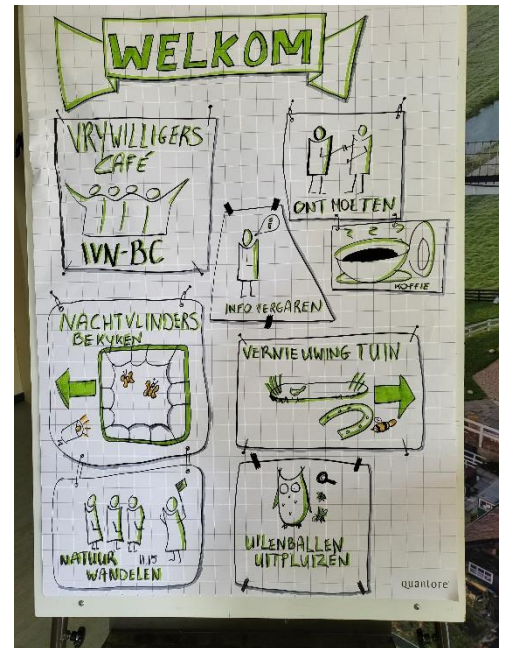 WELKOM
VRYWILLIGERS
CAFÉ
IVN-BC
ONTMOETEN
INFO VERGAREN
KOFFIE
NACHTVLINDERS
BEKYKEN
VERNIEUWING TUIN
NATUUR 11.15
WANDELEN
UILENBALLEN
UITPLUIZEN
quantore